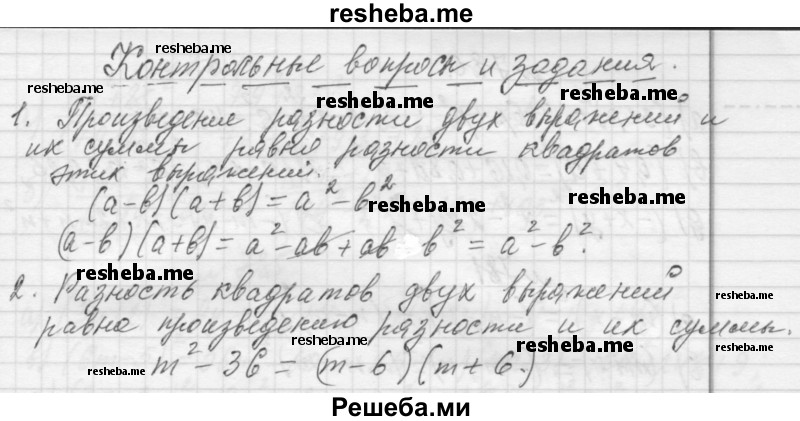 resheba.me
Контрольные вопросы и задания.
resheba.me
resheba.me
resheba.me
resheba.me
1. Произведение разности двух выражений и
их суммы равно разности квадратов
этих выражений.
(a-b)(a+b)=a²-b²
resheba.me
resheba.me
(a-b)(a+b)=a²-ab+ab b²=a²-b².
resheba.me
2. Разность квадратов двух выражений
resheba.me
равна произведению разности и их суммы.
resheba.me
m²-36=(m-6)(m+6.)
resheba.me
resheba.me
Решеба.ми